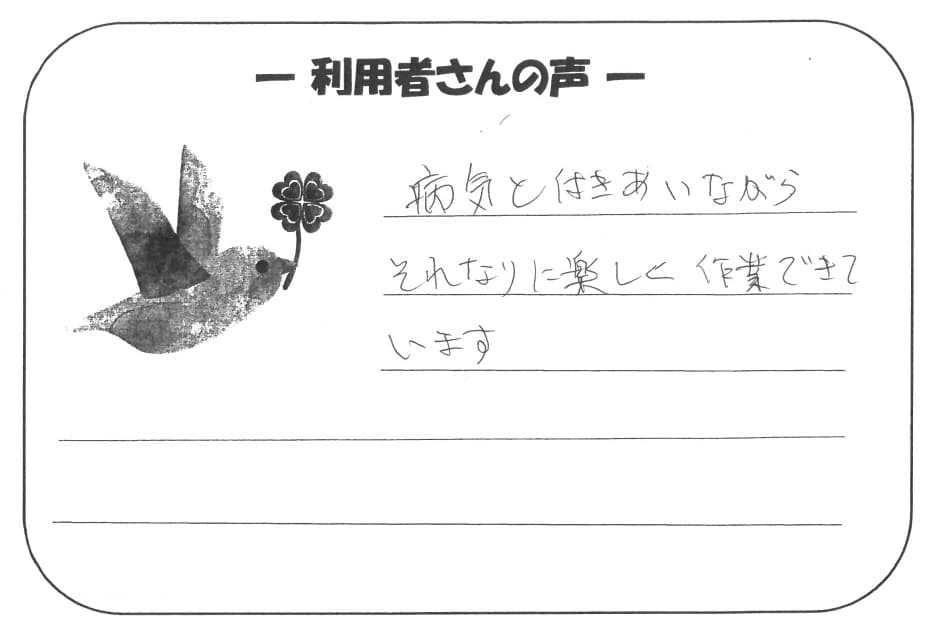 ― 利用者さんの声 ―
病気と付きあいながら
それなりに楽しく作業できて
います